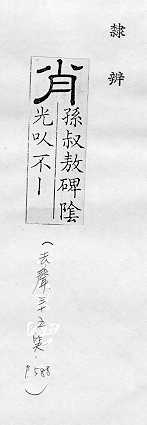 隸辨
肖
孫叔敖碑陰
光以不丨
(去聲.三十五笑.
P.588)